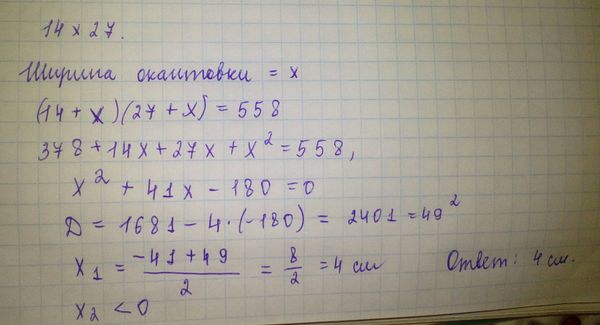 14 x 27.
Ширина окантовки = x
(14 + x)(27 + x) = 558
378 + 14x + 27x + x² = 558,
x² + 41x - 180 = 0
D = 1681 - 4·(-180) = 2401 = 49²
x₁ = (-41 + 49)/2 = 8/2 = 4 см Ответ: 4 см.
x₂ < 0